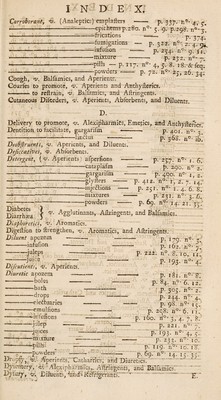 I N D E X.
Corroborant, v. (Analeptic) emplasters — p. 337. n° 4. 5.
— epithems p. 280. n° 5. 9. p. 298. n° 3.
— frictions — p. 324.
— fumigations — p. 322. n° 2. 4.
— infusion — p. 254. n° 9. 11.
— mixture — p. 232. n° 7.
— pills — p. 117. n° 4. 5. 8. 18. &c.
— powders — p. 72. n° 25. 26. 34.
Cough, v. Balsamics, and Aperient.
Courses to promote, v. Aperients and Anthysterics.
— to restrain, v. Balsamics, and Astringents.
Cutaneous Disorders, v. Aperients, Absorbents, and Diluents.
D.
Delivery to promote, v. Alexipharmics, Emetics, and Anthysterics.
Dentition to facilitate, gargarism — p. 401. n° 3.
— linctus — p. 568. n° 1b.
Deobstruents, v. Aperients, and Diluents.
Desiccatives, v. Absorbents.
Detergent, (v. Aperients) aspersions — p. 257. n° 1. 6.
— cataplasm — p. 290. n° 2.
— gargarisms — p. 400. n° 1. 2.
— glysters — p. 412. n° 1. 2. 7. 14.
— injections — p. 251. n° 1. 4. 6. 8.
— mixtures — p. 231. n° 3. 6.
— powders — p. 69. n° 14. 21. 33.
Diabetes
Diarrhæa } v. Agglutinants, Astringents, and Balsamics.
Diaphoretics, v. Aromatics.
Digestion to strengthen, v. Aromatics, and Astringents.
Diluent apozems — p. 179. n° 5.
— infusion — p. 162. n° 5.
— juleps — p. 222. n° 8. 10. 11.
— juice — p. 193. n° 4.
Discutients, v. Aperient.
Diuretic apozems — p. 181. n° 8.
— bolus — p. 84. n° 6. 12.
— bath — p. 305. n° 2.
— drops — p. 244. n° 4.
— electuaries — p. 98. n° 7.
— emulsions — p. 208. n° 6. 11.
— infusions — p. 160. n° 3. 4. 8.
— julep — p. 221. n° 5.
— juices — p. 193. n° 4. 5.
— mixture — p. 233. n° 10.
— pills — p. 119. n° 10. 18.
— powders — p. 69. n° 14. 15. 35.
Dropsy, v. Aperients, Cathartics, and Diuretics.
Dysentery, v. Alexipharmics, Astringents, and Balsamics.
Dysury, v. Diluents, and Refrigerants.
E.